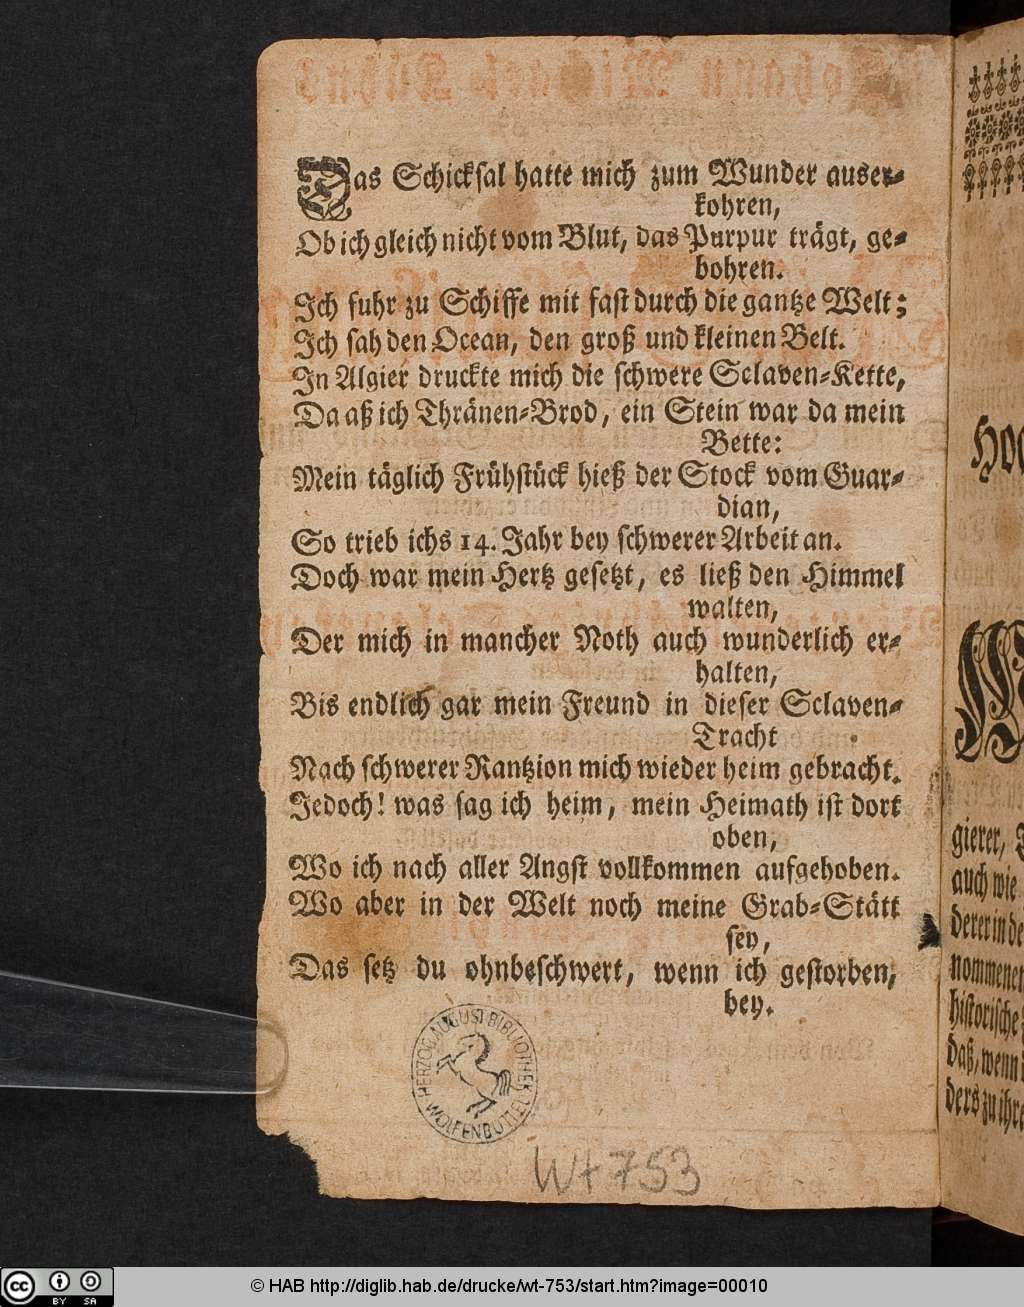 Das Schicksal hatte mich zum Wunder auser-
kohren,
Ob ich gleich nicht vom Blut, das Purpur trägt, ge-
bohren.
Ich fuhr zu Schiffe mit fast durch die gantze Welt;
Ich sah den Ocean, den groß und kleinen Belt.
In Algier druckte mich die schwere Sclaven-Kette,
Da aß ich Thränen-Brod, ein Stein war da mein
Bette:
Mein täglich Frühstück hieß der Stock vom Guar-
dian,
So trieb ichs 14. Jahr bey schwerer Arbeit an.
Doch war mein Hertz gesetzt, es ließ den Himmel
walten,
Der mich in mancher Noth auch wunderlich er-
halten,
Bis endlich gar mein Freund in dieser Sclaven-
Tracht
Nach schwerer Rantzion mich wieder heim gebracht.
Jedoch! was sag ich heim, mein Heimath ist dort
oben,
Wo ich nach aller Angst vollkommen aufgehoben.
Wo aber in der Welt noch meine Grab-Stätt
sey,
Das setz du ohnbeschwert, wenn ich gestorben,
bey.
HERZOG AUGUST BIBLIOTHEK
WOLFENBÜTTEL
Wt 753
gierer,
auch wie
derer in
historische
daß, wenn
ders zu ihre
© HAB http://diglib.hab.de/drucke/wt-753/start.htm?image=00010
cc BY SA